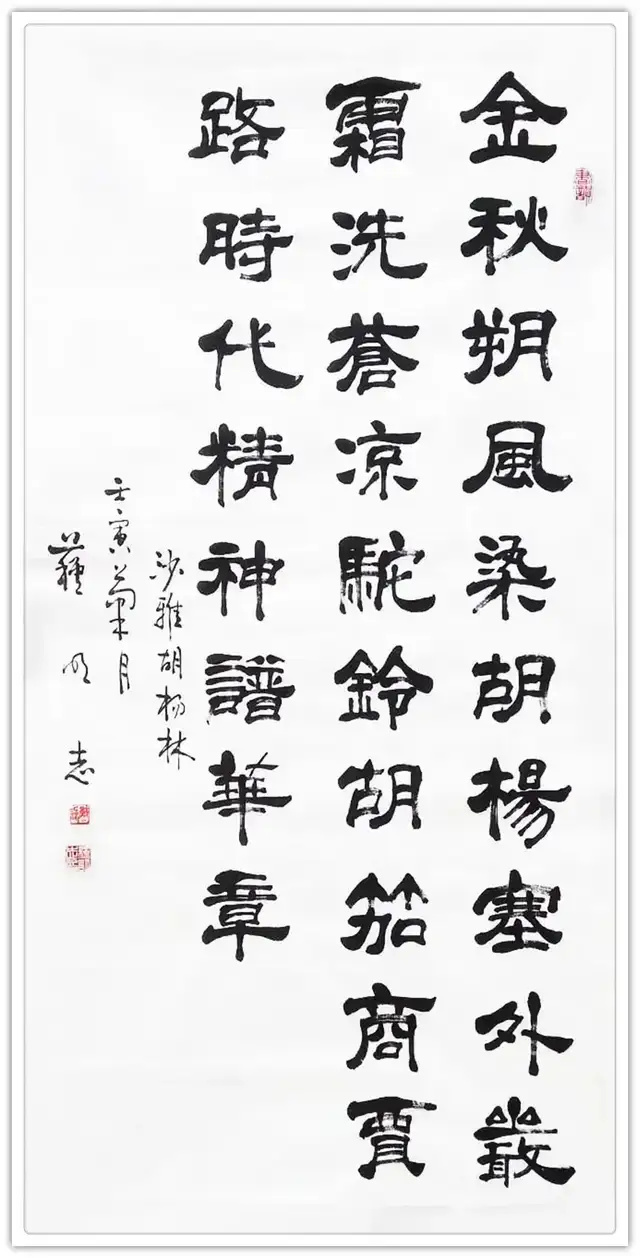 金秋朔風染胡楊塞外嚴
霜洗蒼凉駝鈴胡笳商賈
路時代精神譜華章
沙雅胡杨林
壬寅菊月
志